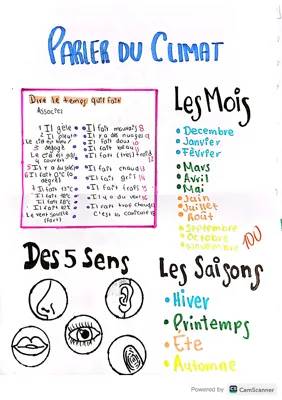 PARLER DU CLIMAT
Dire le temps qu'il fait
Associer
1 Il gèle
Il fait mauvais 8
2 Il pleut
Il y a des nuages
Le ciel est bleu/
Il fait doux
3 dégagé
Il fait beau
Le ciel est gris/
Il fait (très) froid
4 couvert
5 Il y a du soleil
Il fait chaud
6 Il fait 0°C (0
Il fait gris
degré)
Il fait 13°C
Il fait frais
Il y a du vent
Il fait trop chaud
Le vent souffle
C'est un
(fort)
Les Mois
Decembre
Janvier
Février
Mars
Avril
Mai
Juin
Juillet
Août
Septembre
Octobre
Novembre
100
Des 5 Sens
Les Saisons
Hiver
Printemps
Éte
Automne
Powered by CS CamScanner